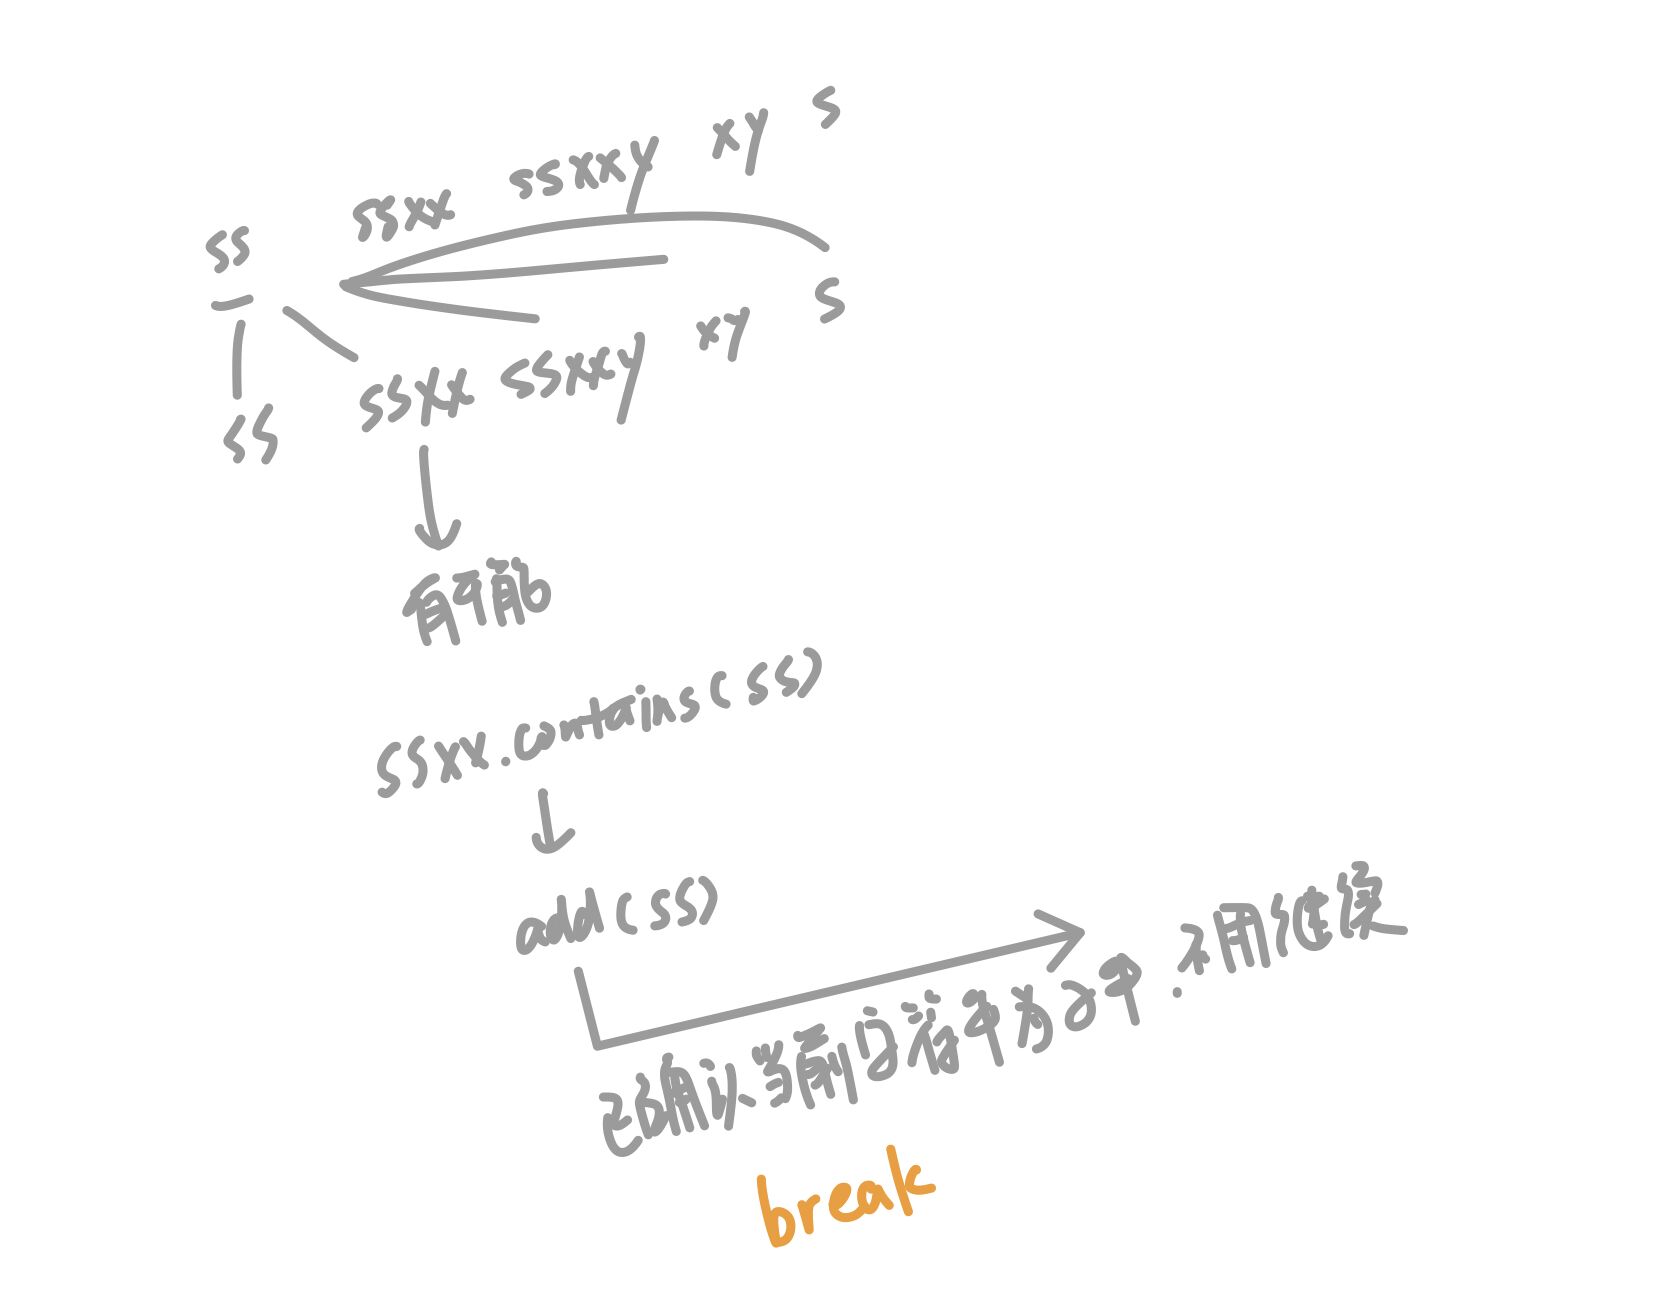 ss ssxx ssxxy xy s
ss ssxx ssxxy xy s
有可能
ssxx.contains(ss)
add(ss)
已确认当前字符串为子串.不用继续
break